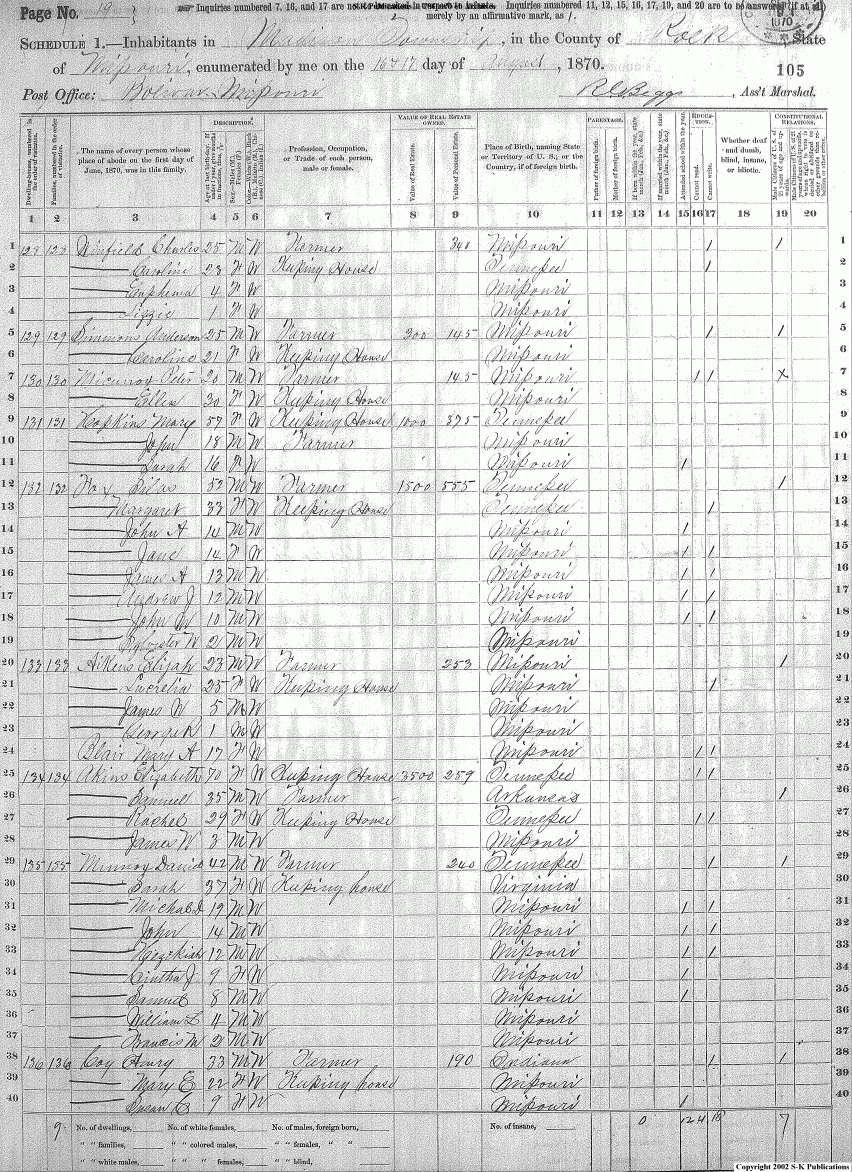 Page No. 19
Inquiries numbered 7, 16, and 17 are not to be asked in respect to infants. Inquiries numbered 11, 12, 15, 16, 17, 19, and 20 are to be answered (if at all)
merely by an affirmative mark, as /.
SCHEDULE 1.—Inhabitants in Madison Township, in the County of Polk, State
of Missouri, enumerated by me on the 16 & 17 day of August, 1870.
105
Post Office: Bolivar Missouri
R C Beggs, Ass't Marshal.
The name of every person whose place of abode on the first day of June, 1870, was in this family.
DESCRIPTION.
Profession, Occupation, or Trade of each person, male or female.
VALUE OF REAL ESTATE OWNED.
Value of Real Estate.
Value of Personal Estate.
Place of Birth, naming State or Territory of U. S.; or the Country, if of foreign birth.
PARENTAGE.
Father of foreign birth.
Mother of foreign birth.
EDUCATION.
Attended school within the year.
Cannot read.
Cannot write.
Whether deaf and dumb, blind, insane, or idiotic.
CONSTITUTIONAL RELATIONS.
1 2 3 4 5 6 7 8 9 10 11 12 13 14 15 16 17 18 19 20
1 128 128 Charles 25 M W Farmer 340 Missouri / / 1
2 — Caroline 23 F W Keeping House Tennessee / 2
3 — Emphema 4 F W Missouri 3
4 — Lizzie 1 F W Missouri 4
5 129 129 Simmons Anderson 25 M W Farmer 300 145 Missouri / / 5
6 — Caroline 21 F W Keeping House Missouri 6
7 130 130 Peter 20 M W Farmer 145 Missouri / / x 7
8 — Ellen 30 F W Keeping House Missouri 8
9 131 131 Hopkins Mary 57 F W Keeping House 1000 375 Tennessee 9
10 — John 18 M W Farmer Missouri 10
11 — Sarah 16 F W Missouri / 11
12 132 132 Fox Silas 52 M W Farmer 1500 555 Tennessee / 12
13 — Margaret 33 F W Keeping House Tennessee / 13
14 — John A 14 M W Missouri / 14
15 — Jane 14 F W Missouri / / 15
16 — James A 13 M W Missouri / / 16
17 — Andrew J 12 M W Missouri / / 17
18 — John W 10 M W Missouri / / 18
19 — Sylvester W 2 M W Missouri 19
20 133 133 Aikens Elijah 23 M W Farmer 253 Missouri / 20
21 — Lucrelia 25 F W Keeping House Missouri / 21
22 — James W 5 M W Missouri 22
23 — George R 1 M W Missouri 23
24 Blair Mary A 17 F W Missouri / / 24
25 134 134 Akins Elizabeth 70 F W Keeping House 3500 259 Tennessee / / 25
26 — Samuel 35 M W Farmer Arkansas / 26
27 — Rachel 29 F W Keeping House Tennessee / / 27
28 — James W 3 M W Missouri 28
29 135 135 David 42 M W Farmer 240 Tennessee / / 29
30 — Sarah 37 F W Keeping house Virginia 30
31 — 19 M W Missouri / / 31
32 — John 14 M W Missouri / / 32
33 — Hezekiah 12 M W Missouri / / 33
34 — Cintha J 9 F W Missouri / 34
35 — Samuel 8 M W Missouri / 35
36 — William L 4 M W Missouri 36
37 — Francis M 2 M W Missouri 37
38 136 136 Coy Henry 33 M W Farmer 190 Indiana / / 38
39 — Mary E 22 F W Keeping house Missouri 39
40 — Susan E 9 F W Missouri / 40
9 No. of dwellings, No. of white females, No. of males, foreign born, No. of insane, 0 12 4 18 7
" " families, " " colored males, " " females, " "
" " white males, " " " females, " " blind,
Copyright 2002 S-K Publications